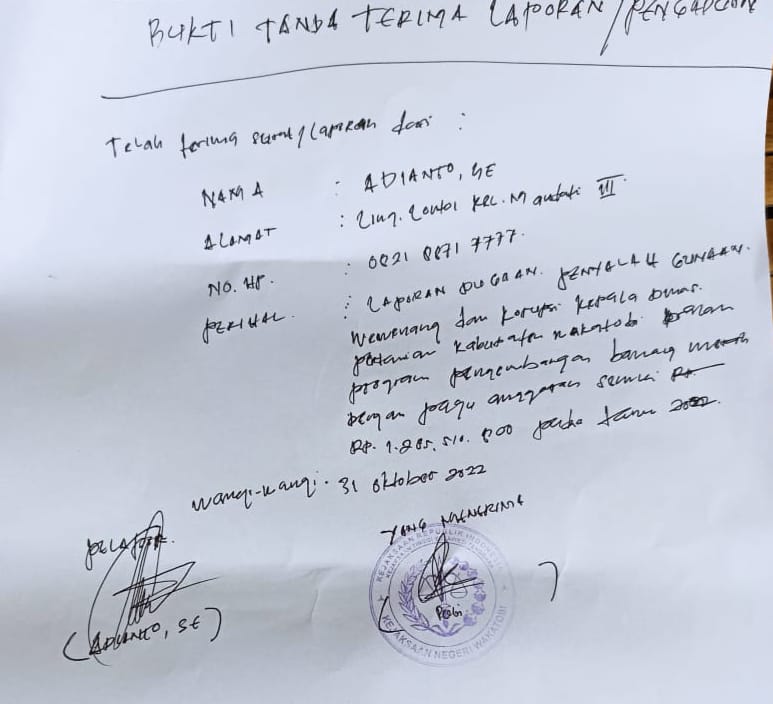 BUKTI TANDA TERIMA LAPORAN / PENGADUAN
Telah terima surat / laporan dari :
NAMA : ADIANTO, SE
ALAMAT : Ling. Lontoi Kel. Mandati III
NO. HP. : 0821 8871 7777.
PERIHAL : LAPORAN DUGAAN. PENYALAH GUNAAN.
Wewenang dan Korupsi Kepala Dinas.
pertanian Kabupaten Wakatobi
program pengembangan bawang merah
Dengan pagu anggaran senilai
RP. 1.285.510.800 pada tahun 2022.
Wangi-Wangi. 31 Oktober 2022
PELAPOR. YANG MENERIMA
KEJAKSAAN REPUBLIK INDONESIA
KEJAKSAAN NEGERI WAKATOBI
(ADIANTO, SE) ( )